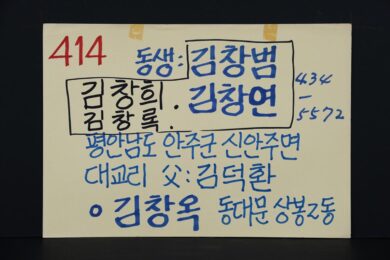 414
동생: 김창범
김창희. 김창연
김창록.
434-5572
평안남도 안주군 신안주면
대교리 父:김덕환
o 김창옥 동대문 상봉2동